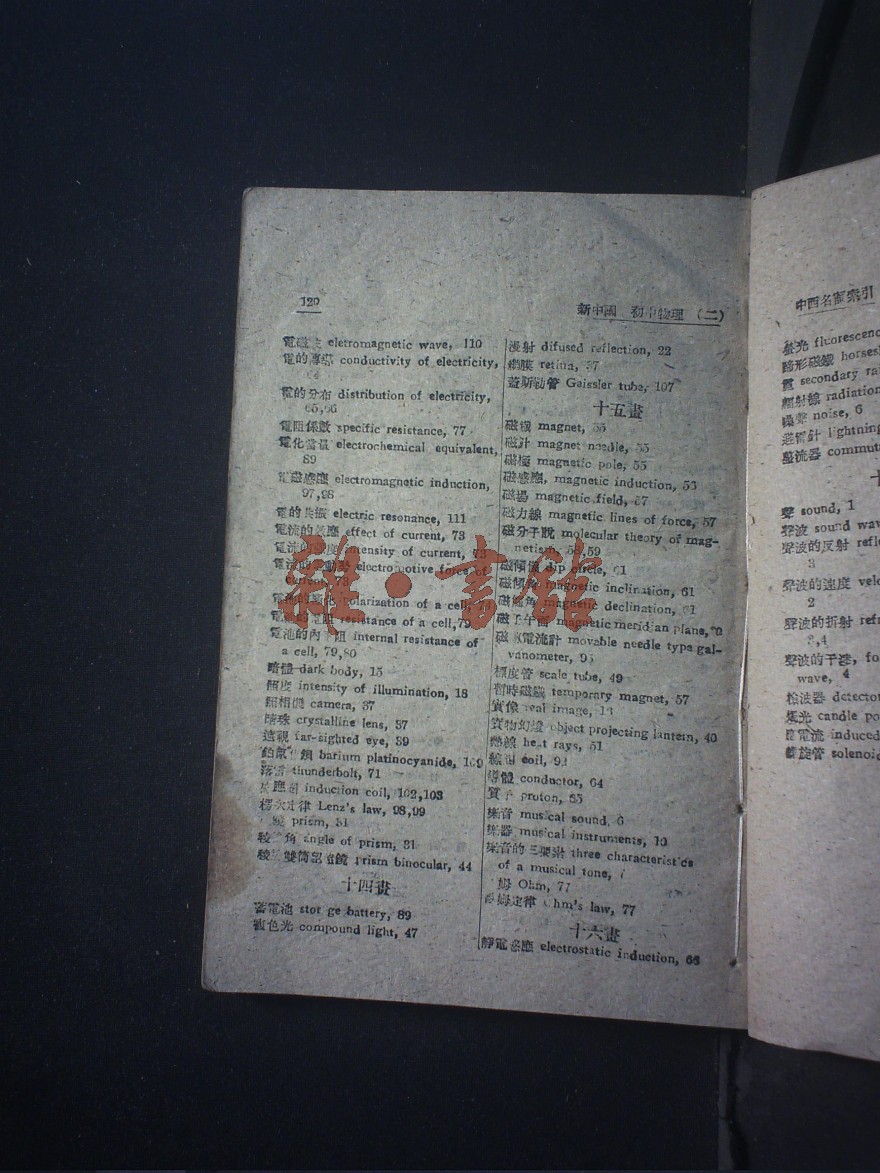 120
新中國 初中物理 (二)
電磁 eletromagnetic wave, 110
電的傳導 conductivity of electricity,
電的分布 distribution of electricity,
65,66
電阻係數 specific resistance, 77
電化當量 electrochemical equivalent,
89
電磁感應 electromagnetic induction,
97,98
電的共振 electric resonance, 111
電流的效應 effect of current, 73
電流的強度 intensity of current, 73
電流的 電動 electromotive force of
current, 73
polarization of a cell,
resistance of a cell, 79
電池的內 阻 internal resistance of
a cell, 79,80
暗體 dark body, 15
照度 intensity of illumination, 18
照相機 camera, 37
睛珠 crystalline lens, 37
遠視 far-sighted eye, 39
barium platinocyanide, 109
落雷 thunderbolt, 71
感應圈 induction coil, 102,103
楞次定律 Lenz's law, 98,99
鏡 prism, 31
稜 角 angle of prism, 31
稜 雙筒望遠鏡 prism binocular, 44
十四畫
蓄電池 stor ge battery, 89
複色光 compound light, 47
漫射 difused reflection, 22
網膜 retina, 37
蓋斯勒管 Geissler tube, 107
十五畫
磁鐵 magnet, 55
磁針 magnet needle, 55
磁極 magnetic pole, 55
磁感應, magnetic induction, 56
磁場 magnetic field, 57
磁力線 magnetic lines of force, 57
磁分子說 molecular theory of mag-
netism, 59
磁傾儀 dip circle, 61
磁傾角 magnetic inclination, 61
磁偏角 magnetic declination, 61
磁子午面 magnetic meridian plane,
磁 電流計 movable needle type gal-
vanometer, 95
標度管 scale tube, 49
暫時磁鐵 temporary magnet, 57
實像 real image,
實物幻燈 object projecting lantern, 40
熱線 heat rays, 51
線圈 coil,
導體 conductor, 64
質子 proton, 65
樂音 musical sound, 6
樂器 musical instruments, 10
樂音的三要素 three characteristics
of a musical tone,
姆 Ohm, 77
姆定律 Ohm's law, 77
十六畫
靜電感應 electrostatic induction, 66
中西名詞索引
螢光 fluorescenc
蹄形磁鐵 horsesh
secondary ra
輻射線 radiation
噪聲 noise, 6
避雷針 lightning
整流器 commuta
聲 sound, 1
聲波 sound wav
聲波的反射 refle
3
聲波的速度 velo
2
聲波的折射 refr
3,4
聲波的干涉, fo
wave, 4
檢波器 detector
燭光 candle po
電流 induced
螺旋管 solenoid
雜·書館